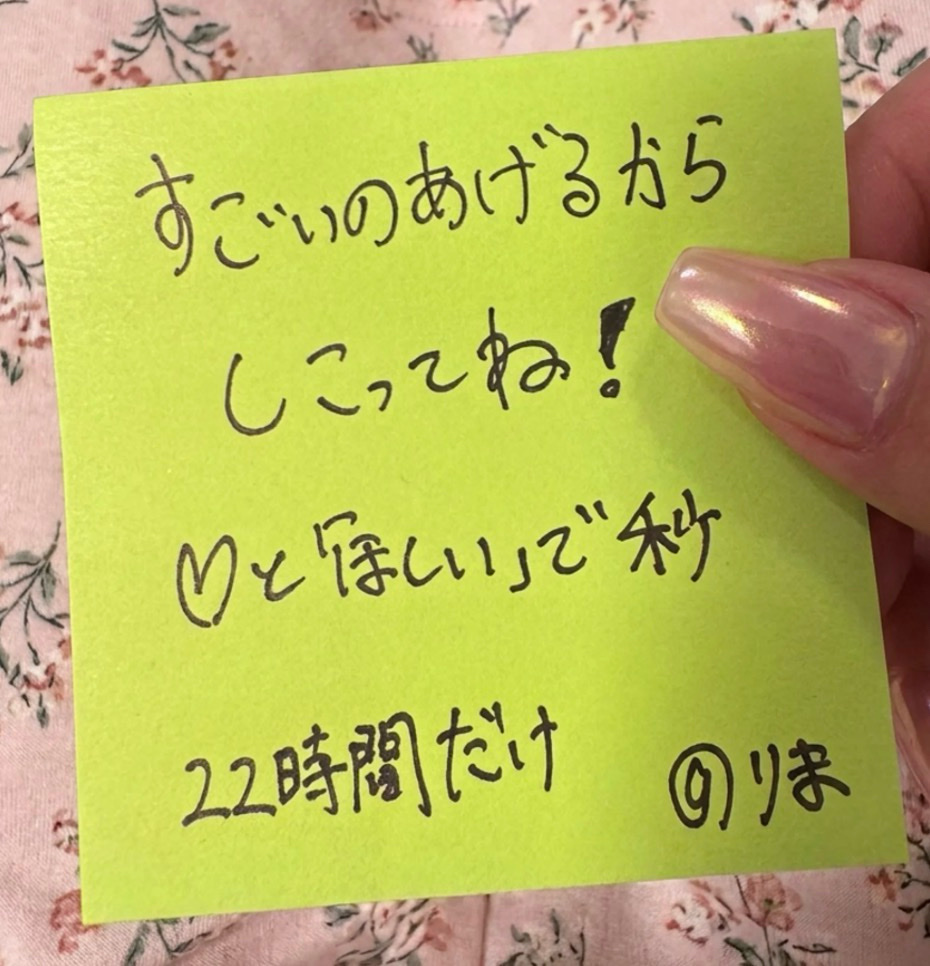 すごいのあげるから
しこってね!
♡と「ほしい」で秒
22時間だけ
@りま